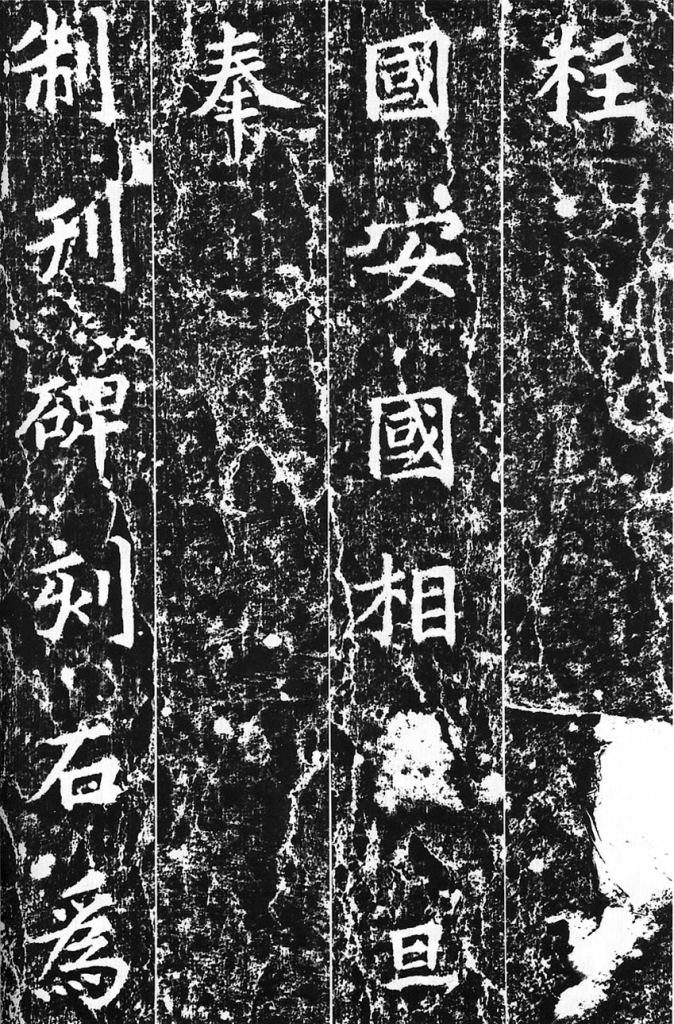 柱
國安國相旦
奉
制刊碑刻石爲